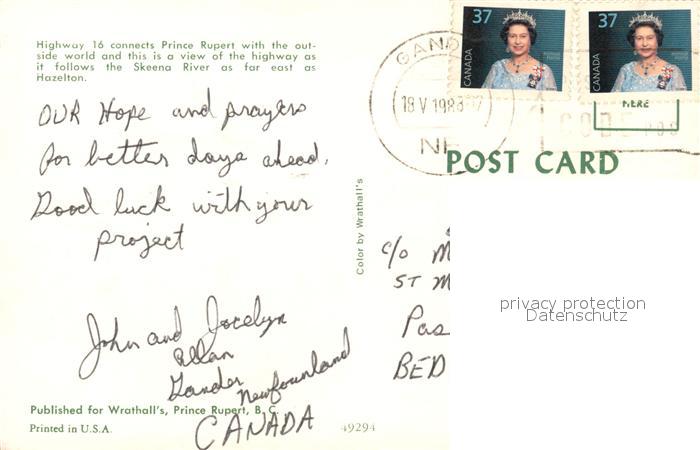 Highway 16 connects Prince Rupert with the out-
side world and this is a view of the highway as
it follows the Skeena River as far east as
Hazelton.
OUR Hope and prayers
for better days ahead.
Good luck with your
project
John and Jocelyn
Allan
Gander
Newfoundland
CANADA
Published for Wrathall's, Prince Rupert, B. C.
Printed in U.S.A.
49294
Color by Wrathall's
37
CANADA
37
CANADA
18 V 1988
HERE
CODE
POST CARD
c/o M
ST M
Pas
BED
privacy protection
Datenschutz